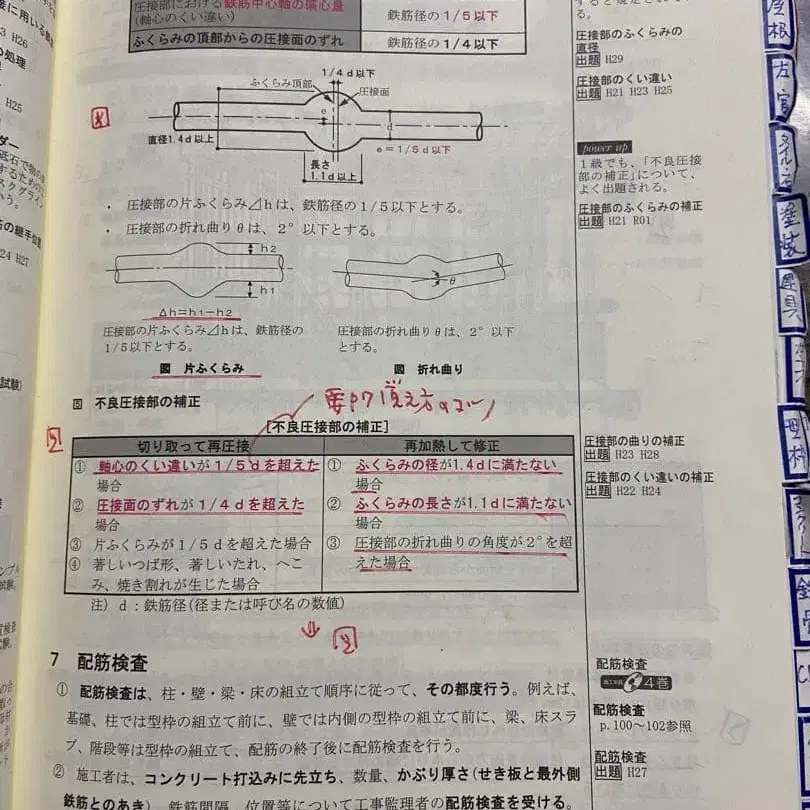 圧接部における鉄筋中心軸の偏心量
(軸心のくい違い)
鉄筋径の1/5以下
ふくらみの頂部からの圧接面のずれ
鉄筋径の1/4以下
1/4d以下
ふくらみ頂部
圧接面
e
d
直径1.4d以上
e=1/5d以下
長さ
1.1d以上
・ 圧接部の片ふくらみ⊿hは、鉄筋径の1/5以下とする。
・ 圧接部の折れ曲りθは、2°以下とする。
h2
h1
θ
Δh=h1−h2
圧接部の片ふくらみ⊿hは、鉄筋径の
1/5以下とする。
圧接部の折れ曲りθは、2°以下
とする。
図 片ふくらみ
図 折れ曲り
不良圧接部の補正
[不良圧接部の補正]
切り取って再圧接
再加熱して修正
① 軸心のくい違いが1/5dを超えた
場合
② 圧接面のずれが1/4dを超えた
場合
③ 片ふくらみが1/5dを超えた場合
④ 著しいつば形、著しいたれ、へこ
み、焼き割れが生じた場合
① ふくらみの径が1.4dに満たない
場合
② ふくらみの長さが1.1dに満たない
場合
③ 圧接部の折れ曲りの角度が2°を超
えた場合
注) d:鉄筋径(径または呼び名の数値)
7 配筋検査
① 配筋検査は、柱・壁・梁・床の組立て順序に従って、その都度行う。例えば、
基礎、柱では型枠の組立て前に、壁では内側の型枠の組立て前に、梁、床スラ
ブ、階段等は型枠の組立て、配筋の終了後に配筋検査を行う。
② 施工者は、コンクリート打込みに先立ち、数量、かぶり厚さ(せき板と最外側
鉄筋とのあき)、鉄筋間隔、位置等について工事監理者の配筋検査を受ける。
る。
圧接部のふくらみの
直径
出題 H29
圧接部のくい違い
出題 H21 H23 H25
power up
1級でも、「不良圧接
部の補正」について、
よく出題される。
圧接部のふくらみの補正
出題 H21 R01
圧接部の曲りの補正
出題 H23 H28
圧接部のくい違いの補正
出題 H22 H24
配筋検査
4巻
配筋検査
p.100〜102参照
配筋検査
出題 H27
屋根
左官
タイル・石
塗装
建具
型枠
コンクリート
鉄骨
3 H26
の処理
H25
ダー
24 H27